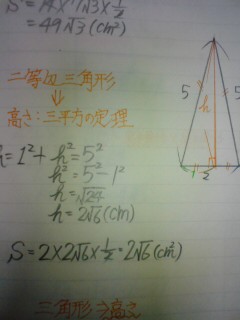 S = 14×7√3×1/2
= 49√3 (cm²)
二等辺三角形
⇓
高さ:三平方の定理
h = 1² + h² = 5²
h² = 5² - 1²
h = √24
h = 2√6 (cm)
S = 2×2√6×1/2 = 2√6 (cm²)
5
h
5
1
2
三角形
高さ